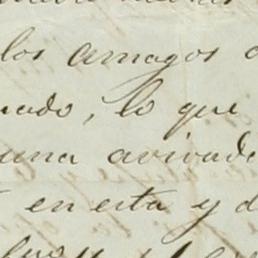 los amagos
nado, lo que
una avivada
en esta y d